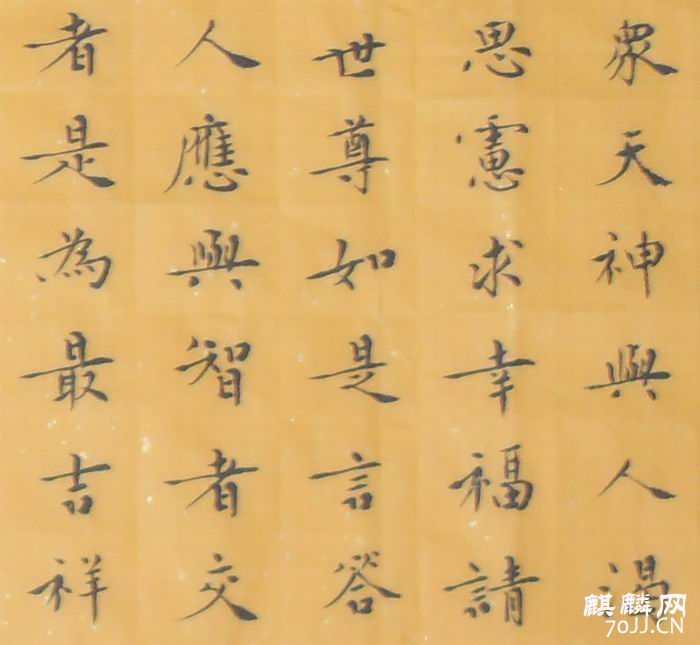 眾天神與人渴
思慮求幸福請
世尊如是言答
人應與智者交
者是為最吉祥
麒麟网
70JJ.CN